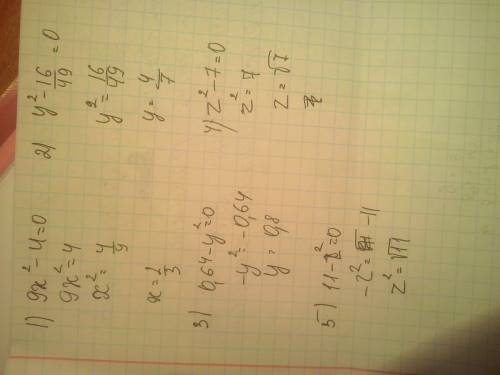 1) 9x² - 4 = 0
9x² = 4
x² = 4/9
x = 2/3
2) y² - 16/49 = 0
y² = 16/49
y = 4/7
3) 0,64 - y² = 0
-y² = -0,64
y = 0,8
4) z² - 7 = 0
z² = 7
z = √7
5) 11 - z² = 0
-z² = -11
z² = √11